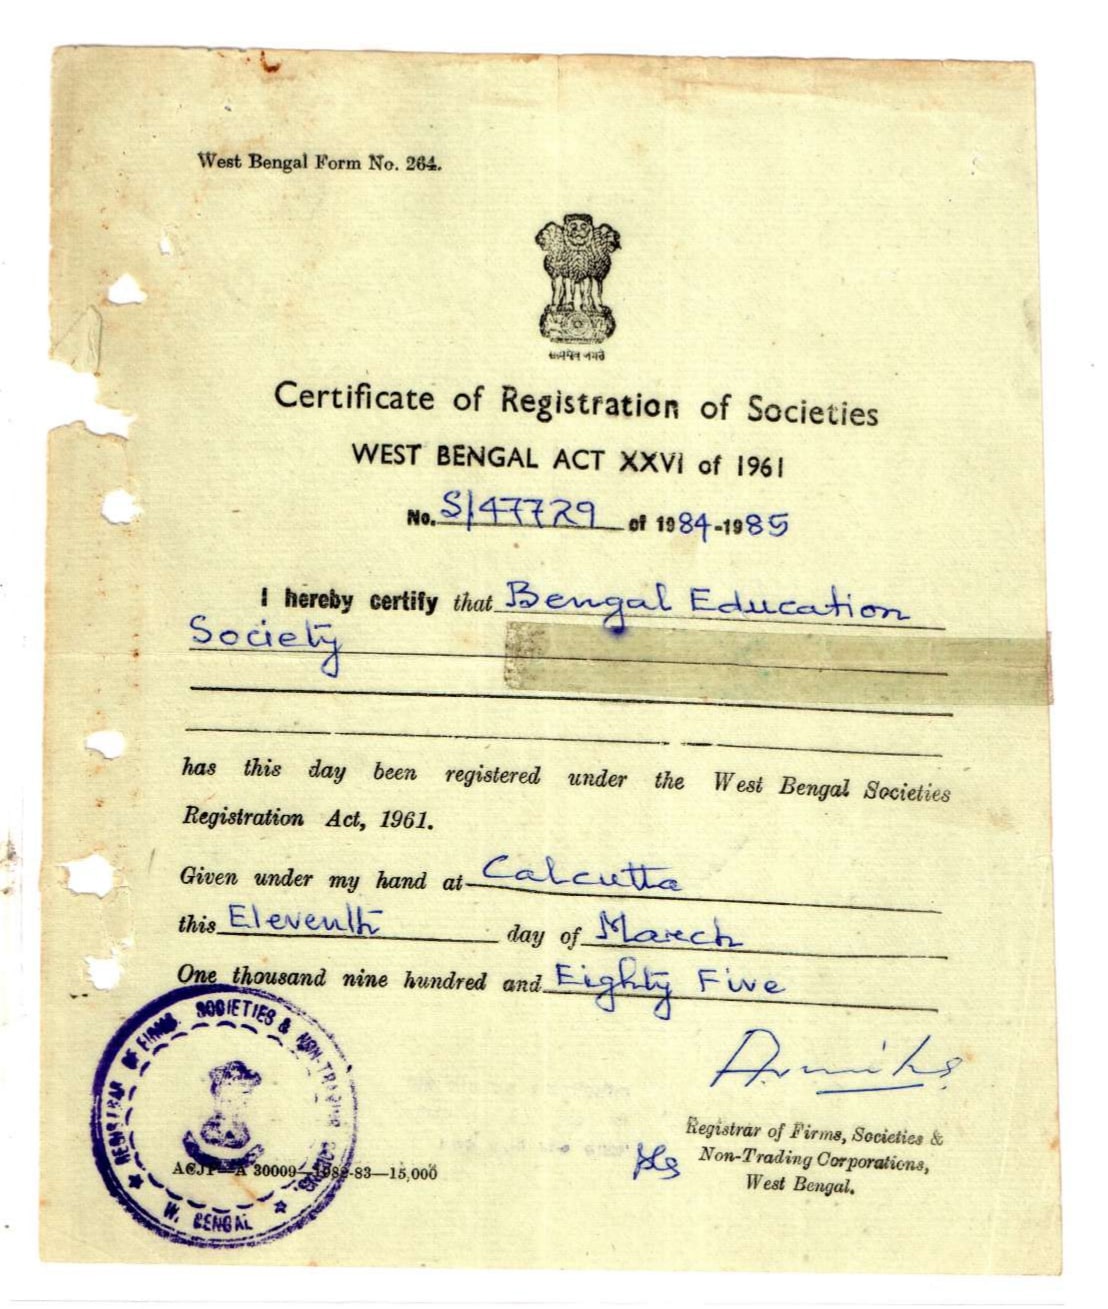 West Bengal Form No. 264.
सत्यमेव जयते
Certificate of Registration of Societies
WEST BENGAL ACT XXVI of 1961
No. S/47729 of 1984-1985
I hereby certify that Bengal Education
Society
has this day been registered under the West Bengal Societies
Registration Act, 1961.
Given under my hand at Calcutta
this Eleventh day of March
One thousand nine hundred and Eighty Five
REGISTRAR OF FIRMS, SOCIETIES & NON-TRADING
W. BENGAL
Registrar of Firms, Societies &
Non-Trading Corporations,
West Bengal.
A 30009—1982-83—15,000